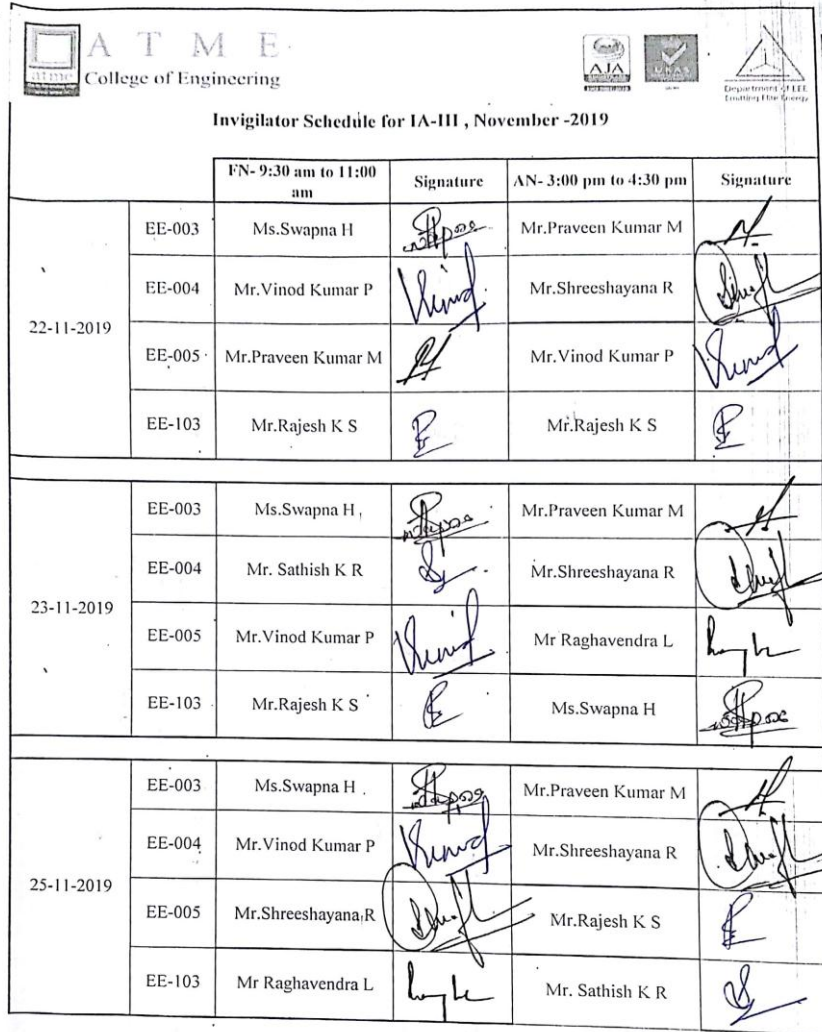 A T M E
atme College of Engineering
AJA
UKAS
Department of EEE
Invigilator Schedule for IA-III , November -2019
FN- 9:30 am to 11:00 am Signature AN- 3:00 pm to 4:30 pm Signature
22-11-2019
EE-003 Ms.Swapna H Mr.Praveen Kumar M
EE-004 Mr.Vinod Kumar P Vinod Mr.Shreeshayana R
EE-005 Mr.Praveen Kumar M Mr.Vinod Kumar P Vinod
EE-103 Mr.Rajesh K S Mr.Rajesh K S
23-11-2019
EE-003 Ms.Swapna H Mr.Praveen Kumar M
EE-004 Mr. Sathish K R Mr.Shreeshayana R
EE-005 Mr.Vinod Kumar P Vinod Mr Raghavendra L
EE-103 Mr.Rajesh K S Ms.Swapna H
25-11-2019
EE-003 Ms.Swapna H Mr.Praveen Kumar M
EE-004 Mr.Vinod Kumar P Vinod Mr.Shreeshayana R
EE-005 Mr.Shreeshayana R Mr.Rajesh K S
EE-103 Mr Raghavendra L Mr. Sathish K R